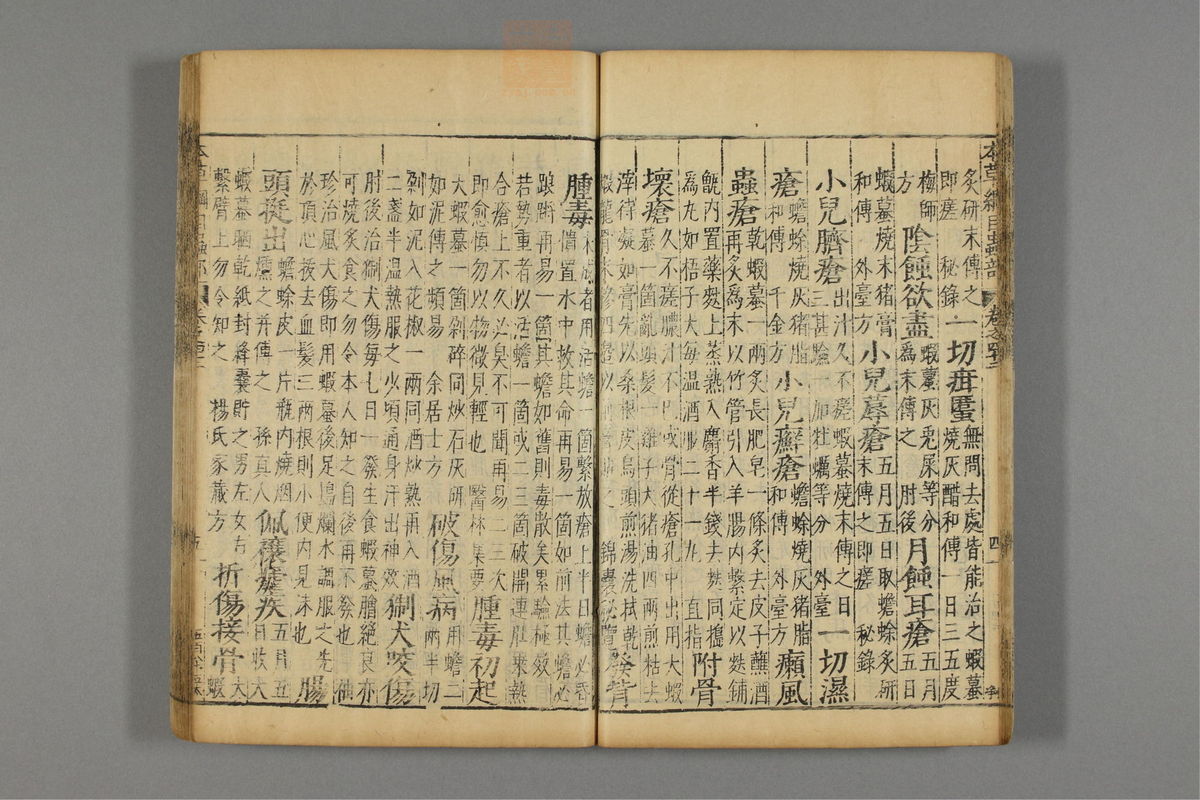 本草綱目蟲部 卷之四十二 四
炙研末傅之即瘥 秘錄 一切疳䘌 無問去處皆能治之蝦蟇燒灰醋和傅一日三五度
梅師方 陰蝕欲盡 蝦蟇灰兎屎等分為末傅之 肘後 月蝕耳瘡 五月五日
蝦蟇燒末猪膏和傅 外臺 小兒蓐瘡 五月五日取蟾蜍炙研末傅之即瘥 秘錄
小兒臍瘡 出汁久不瘥蝦蟇燒末傅之日三甚驗一加牡蠣等分 外臺 一切濕
瘡 蟾蜍燒灰猪脂和傅 千金方 小兒癬瘡 蟾蜍燒灰猪脂和傅 外臺方 癩風
蟲瘡 乾蝦蟇一兩炙長肥皂一條炙去皮子蘸酒再炙爲末以竹管引入羊腸内繫定以麩鋪
甑内置藥麩上蒸熟入麝香半錢去麩同搗爲丸如梧子大每温酒服二十一丸 直指 附骨
壞瘡 久不瘥膿汁不已或骨從瘡孔中出用大蝦蟇一箇亂頭髮一雞子大猪油四兩煎枯去
滓待凝如膏先以桑根皮烏頭煎湯洗拭乾煅龍骨末糝四邊以前膏貼之 錦囊秘覽 發背
腫毒 未成者用活蟾一箇繫放瘡上半日蟾必昏憒置水中救其命再易一箇如前法其蟾必
踉蹡再易一箇其蟾如舊則毒散矣累驗極效若勢重者以活蟾一箇或二三箇破開連肚乗熱
合瘡上不久必臭不可聞再易二三次即愈慎勿以物微見輕也 醫林集要 腫毒初起
大蝦蟇一箇剁碎同炒石灰研如泥傅之頻易 余居士方 破傷風病 用蟾二兩半切
剁如泥入花椒一兩同酒炒熟再入酒二盞半温熱服之少頃通身汗出神效 猘犬咬傷
肘後治猘犬傷每七日一發生食蝦蟇膾絕良亦可燒炙食之勿令本人知之自後再不發也 袖
珍治風犬傷即用蝦蟇後足搗爛水調服之先於頂心拔去血髮三兩根則小便内見沫也 腸
頭挺出 蟾蜍皮一片瓶内燒烟熏之并傅之 孫真人 佩禳瘧疾 五月五日收大
蝦蟇晒乾紙封絳囊貯之男左女右繫臂上勿令知之 楊氏家藏方 折傷接骨 大蝦
本草綱目蟲部 卷之四十二 五